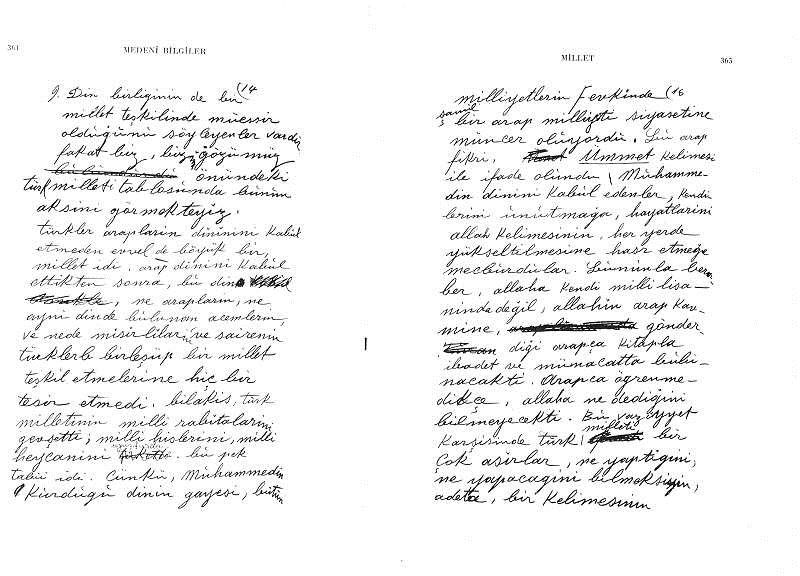 361
MEDENÎ BİLGİLER
9. Din birliğinin de bir (14
millet teşkilinde müessir
olduğunu söyleyenler vardır
fakat biz, bizim gözümüz
önündeki
türk milleti tablosunda bunun
aksini görmekteyiz.
türkler arapların dinini kabul
etmeden evvel de böyük bir,
millet idi. arap dinini kabul
ettikten sonra, bu din
ne arapların, ne
ayni dinde bulunan acemlerin,
ve nede mısırlılar, ve sairenin
türklerle birleşüp bir millet
teşkil etmelerine hiç bir
tesir etmedi. bilâkis, türk
milletinin milli rabıtalarını
gevşetti; milli hislerini, milli
heycanini . bu pek
tabii idi. Çünkü, Muhammedin
Kurduğu dinin gayesi, bütün
MİLLET
365
milliyetlerin fevkinde (16
şamil
bir arap milliyeti siyasetine
müncer oluyordu. Bu arap
fikri, Ümmet kelimesi
ile ifade olundu Muhamme-
din dinini kabul edenler, kendi
lerini unutmağa, hayatlarini
allah kelimesinin, her yerde
yükseltilmesine hasr etmeğe
mecburdular. Bununla bera
ber, allaha kendi milli lisa-
nında değil, allahin arap kav-
mine, gönder-
diği arapça kitapla
ibadet ve münacatta bulu-
nacaktı. Arapca öğrenme-
dikçe, allaha ne dediğini
bilmeyecekti. Bu vaziyyet
milleti
karşisinde türk bir
Çok asirlar, ne yaptigini,
ne yapacagini bilmeksizin,
adeta, bir kelimesinin